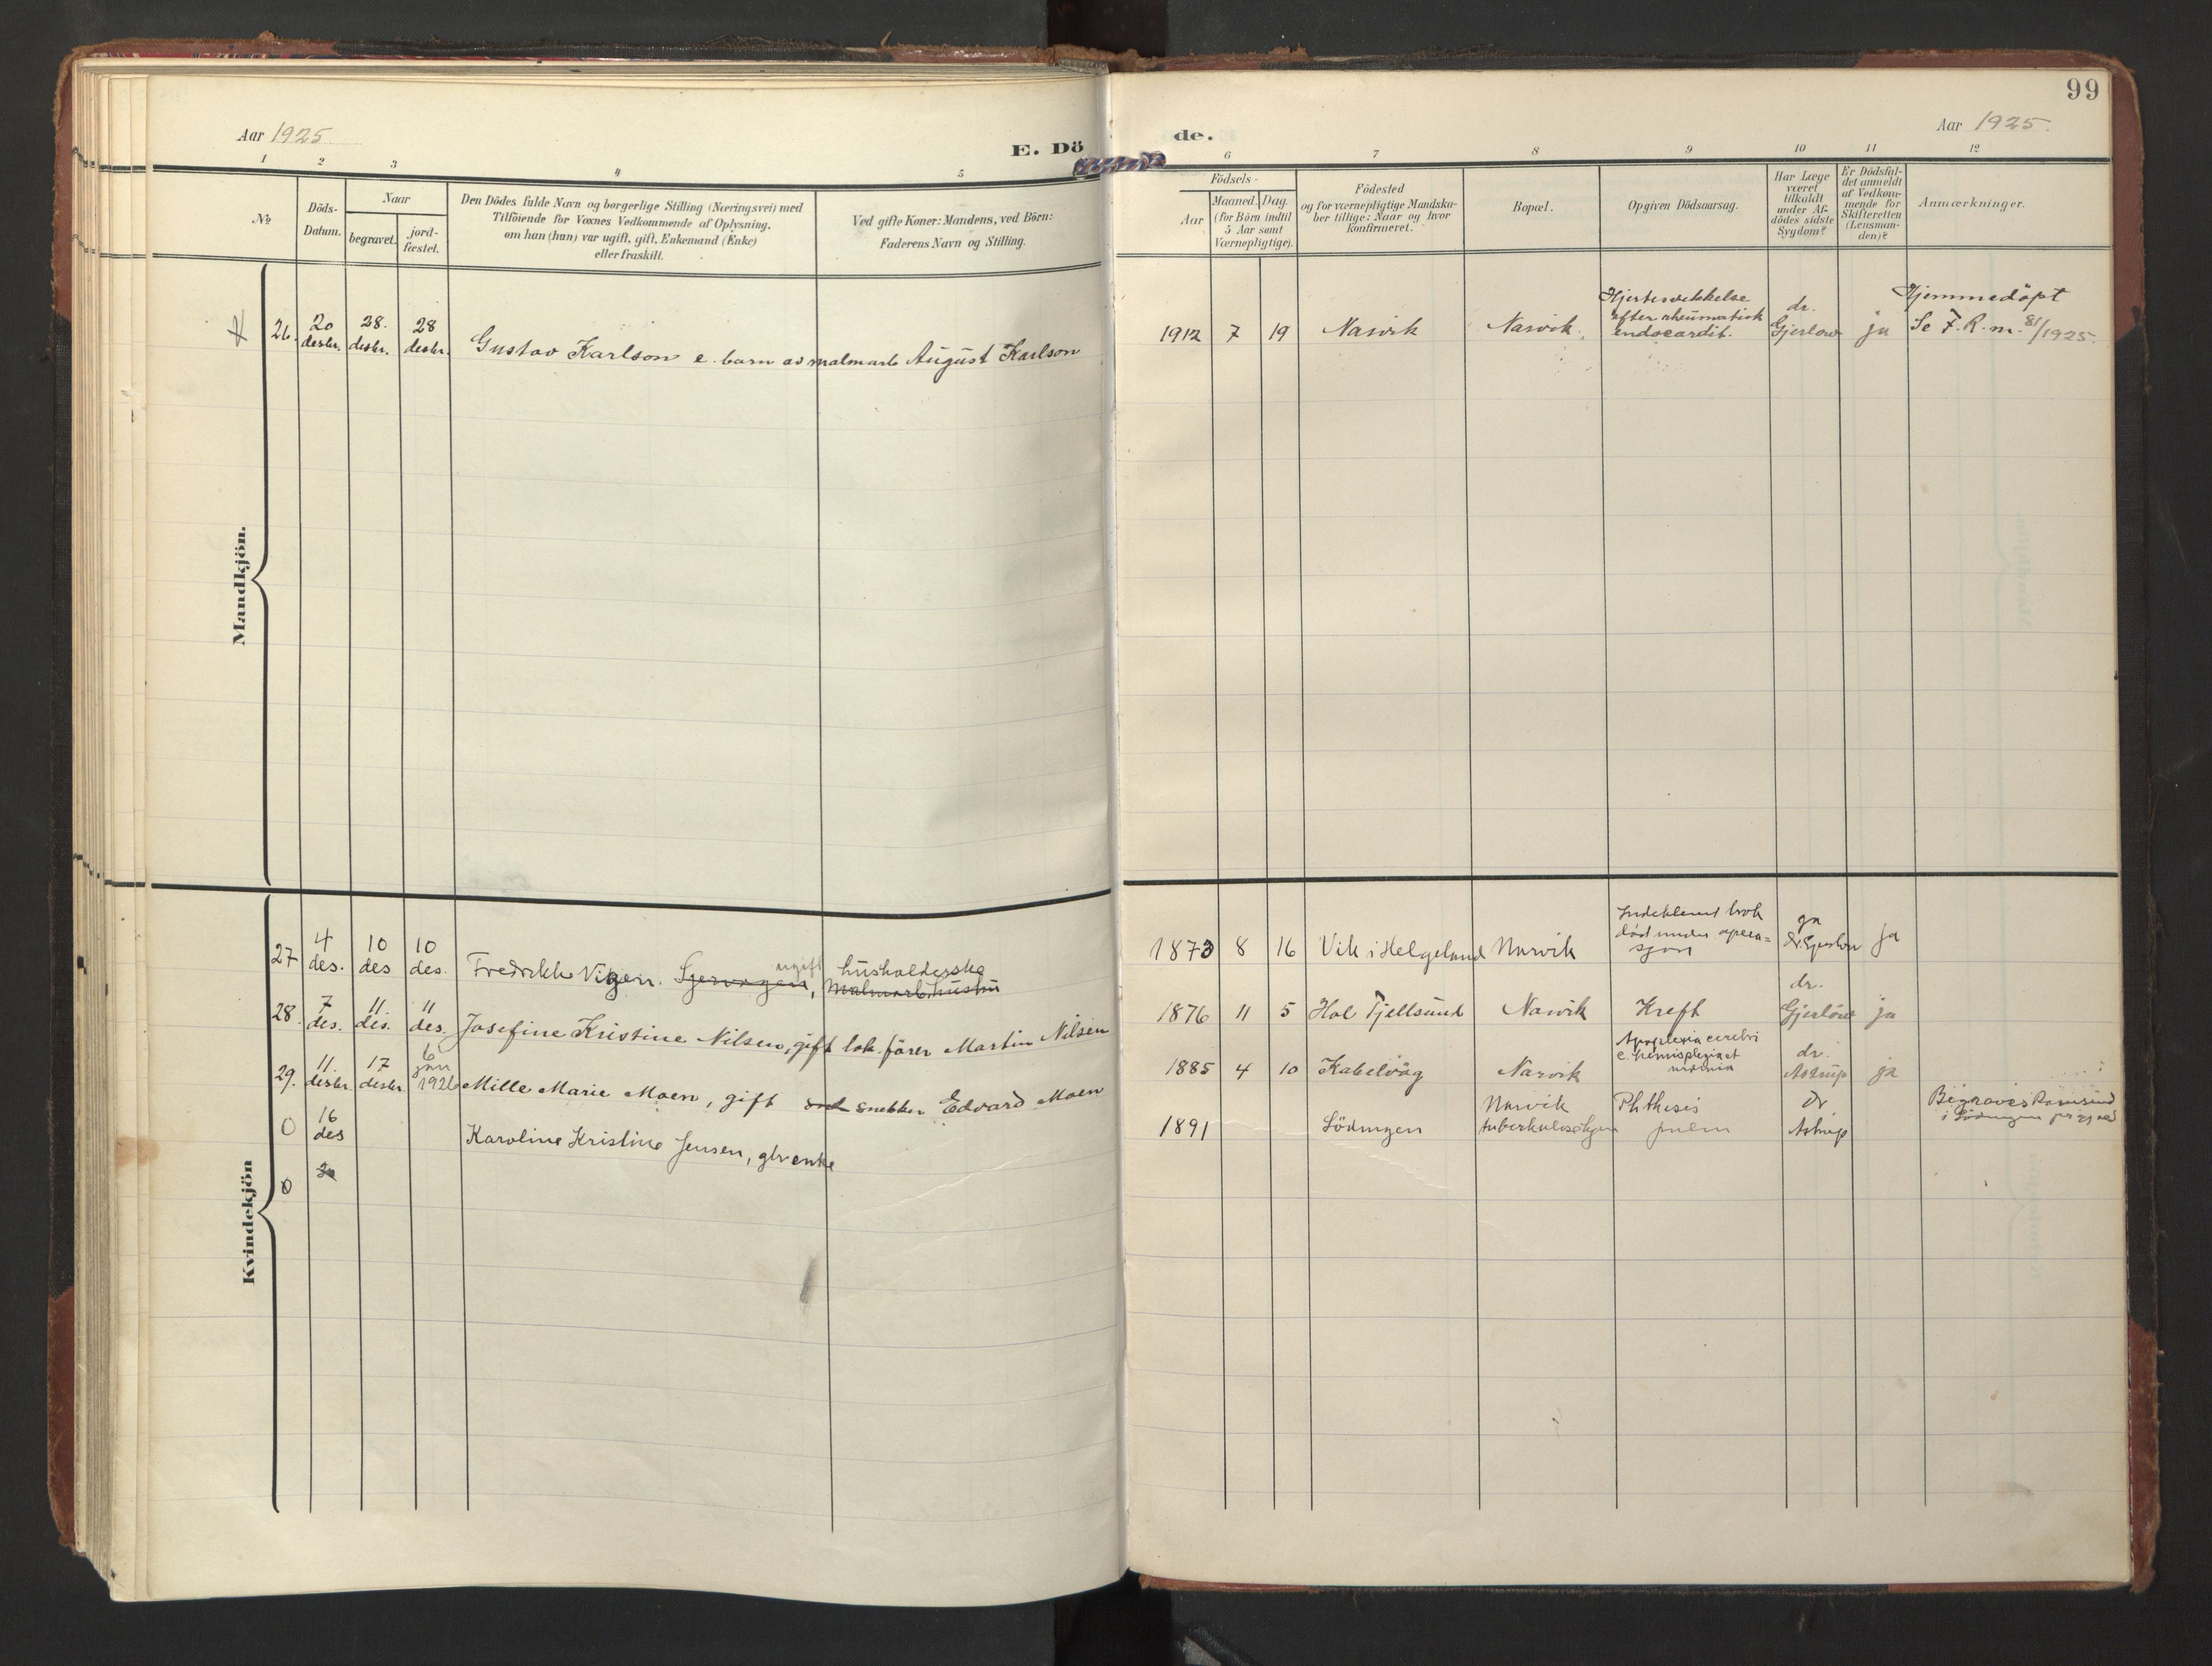 99
Aar 1925
E. Dö
de.
Aar 1925.
1 2 3 4 5 6 7 8 9 10 11 12
No
Döds-
Datum.
Naar
begravet.
jord-
fæstet.
Den Dödes fulde Navn og borgerlige Stilling (Næringsvei) med
Tilföiende for Voxnes Vedkommende af Oplysning,
om han (hun) var ugift, gift, Enkemand (Enke)
eller fraskilt.
Ved gifte Koner: Mandens, ved Börn:
Faderens Navn og Stilling.
Födsels-
Aar
Maaned. Dag.
(for Börn indtil
5 Aar samt
Værnepligtige).
Födested
og for værnepligtige Mandska-
ber tillige: Naar og hvor
konfirmeret.
Bopæl.
Opgiven Dödsaarsag.
Har Læge
været
tilkaldt
under Af-
dödes sidste
Sygdom?
Er Dödsfal-
det anmeldt
af Vedkom-
mende for
Skifteretten
(Lensman-
den)?
Anmærkninger.
Mandkjön.
26. 20 desbr. 28. desbr. 28 desbr. Gustav Karlson e. barn av malmarb August Karlson
1912 7 19 Narvik Narvik.
Hjertesvekkelse
efter rheumatisk
endocardit.
dr.
Gjerlow
ja
Hjemmedöpt
Se F. R. m. 81/1925.
Kvindekjön
27 4 des. 10 des 10 des. Fredrikke Vigen. ugift husholderske
1873 8 16 Vik i Helgeland Narvik
Indeklemt brok
död under opera=
sjon
ja
dr. Gjerlow
ja
28. 7 des. 11 des. 11 des. Josefine Kristine Nilsen, gift lok. förer Martin Nilsen
1876 11 5 Hol Tjellsund Narvik Kreft
dr.
Gjerlöw
ja
29. 11. desbr. 17 desbr 6 jan 1926 Mille Marie Moen, gift snekker Edvard Moen
1885 4 10 Kabelvåg Narvik
Apoplexia cerebri
dr.
Astrup
ja
0 16 des Karoline Kristine Jensen, enke
1891 Lödingen
Narvik
Phthesis
pulm
dr
Astrup
Begraves Ramsund
i Lödingen
0 20